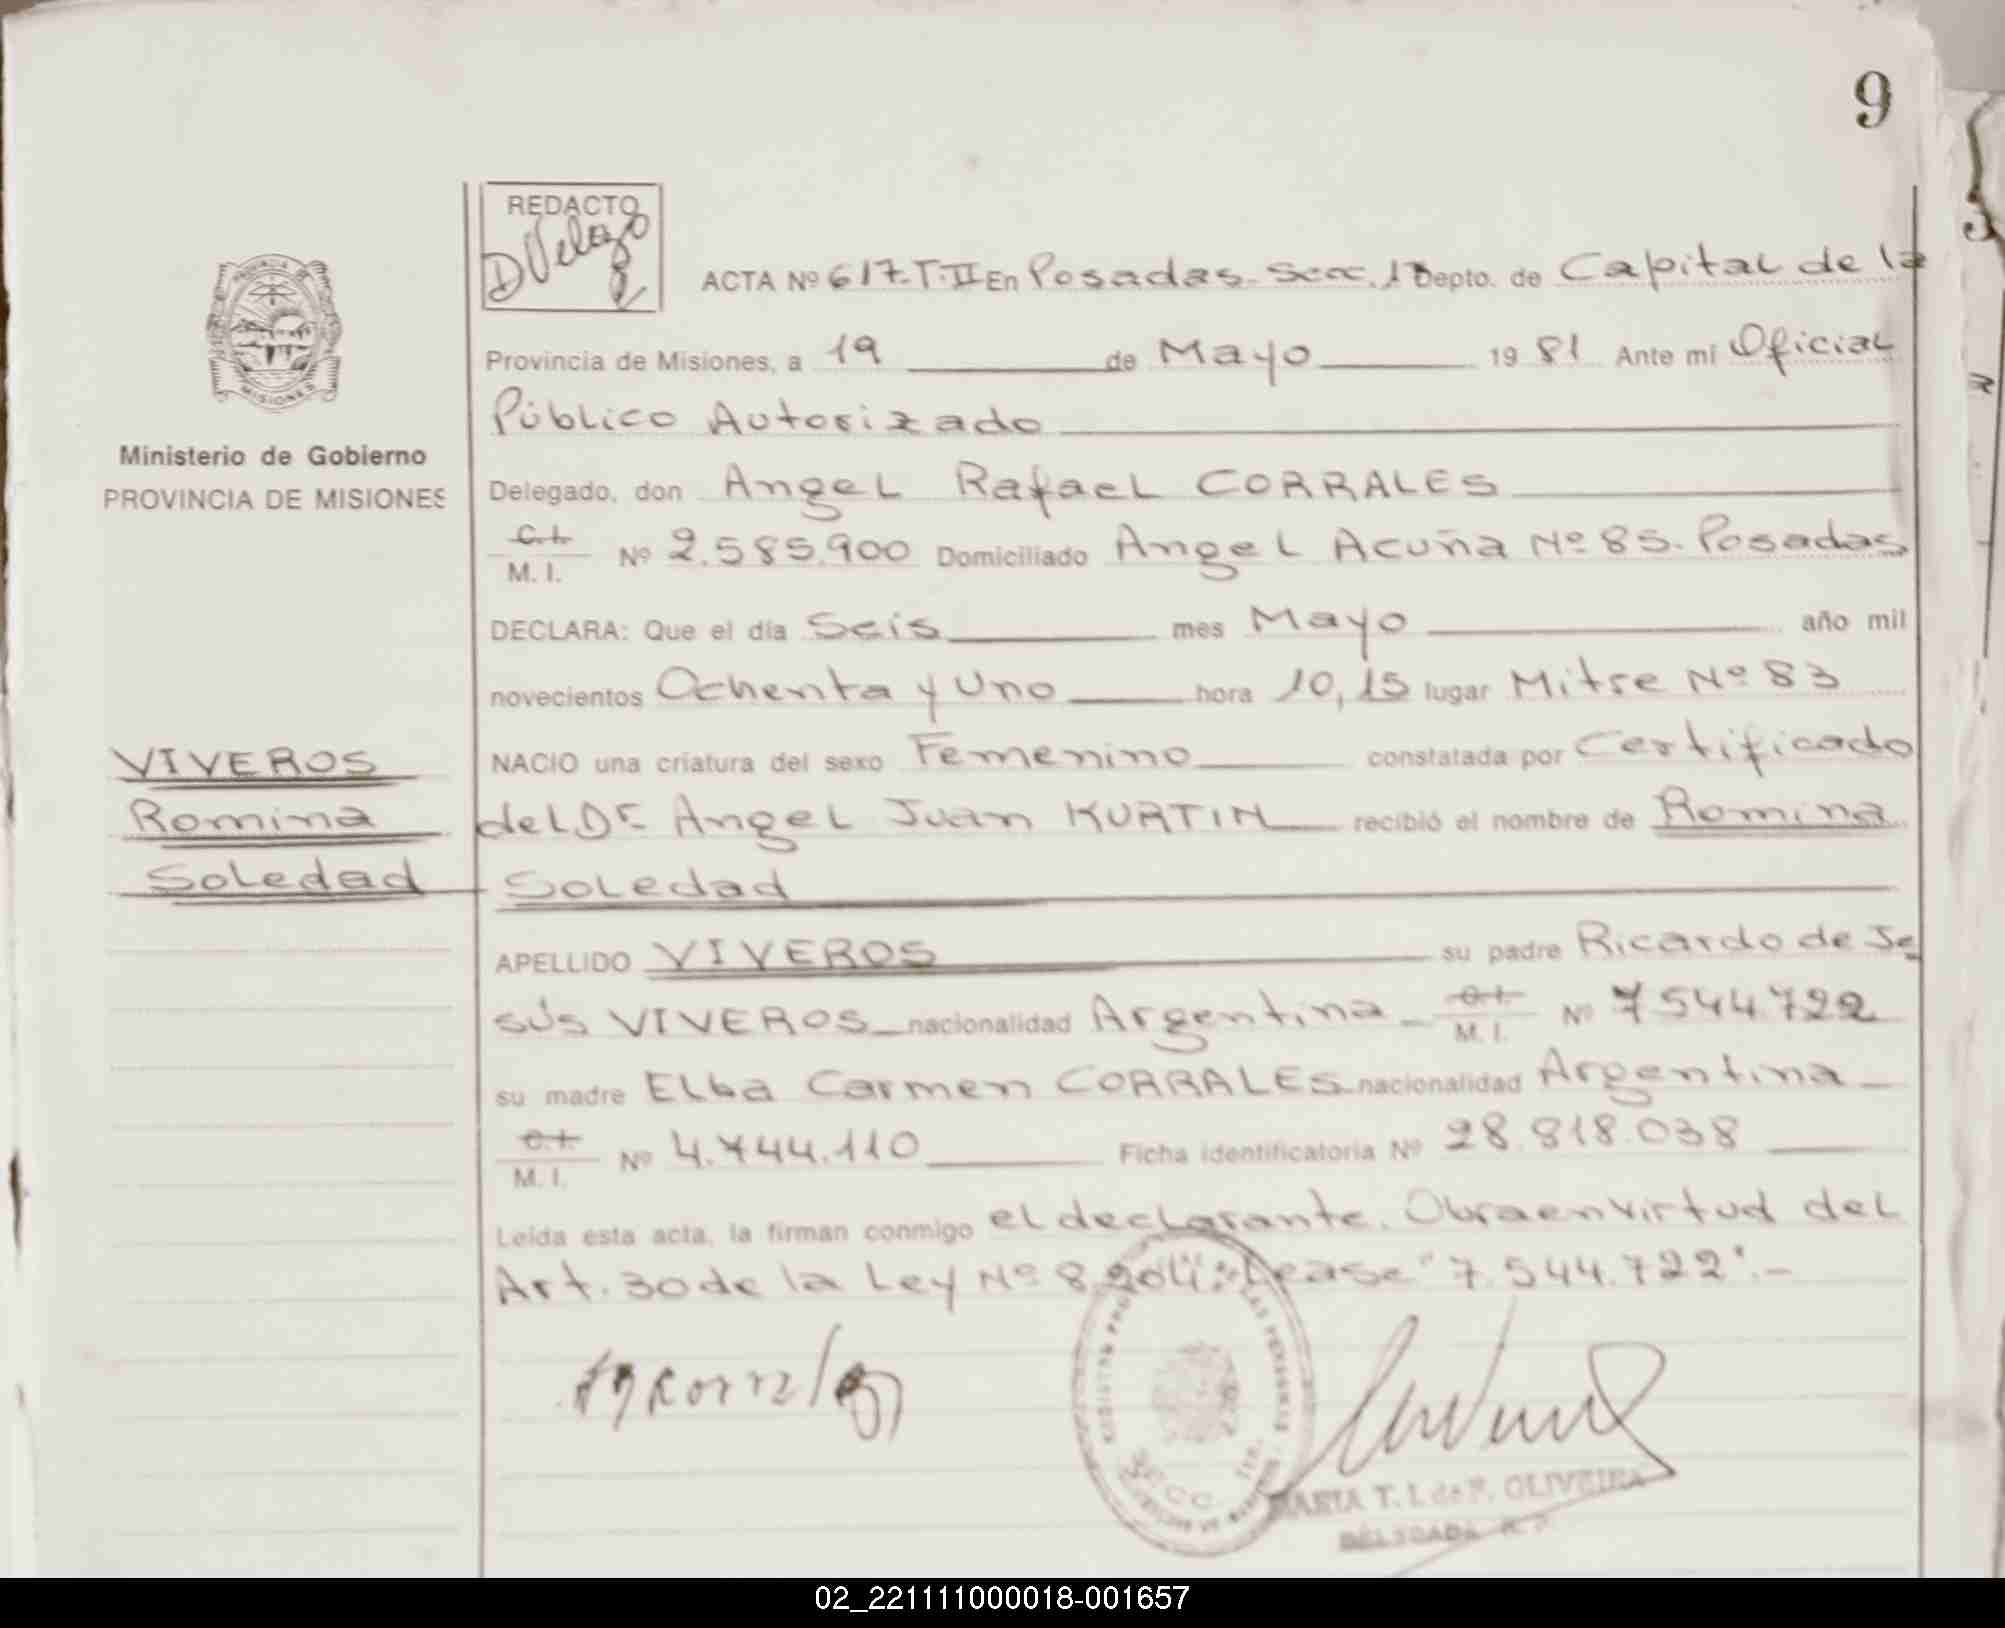 9
REDACTO
ACTA Nº 617-T-II En Posadas- Secc. 1ª Depto. de Capital de la
Provincia de Misiones, a 19 de Mayo 19 81 Ante mí Oficial
Público Autorizado
Ministerio de Gobierno
PROVINCIA DE MISIONES
Delegado, don Angel Rafael CORRALES
C.I.
M. I. Nº 2.585.900 Domiciliado Angel Acuña Nº 85. Posadas
DECLARA: Que el día Seis mes Mayo año mil
novecientos Ochenta y Uno hora 10,15 lugar Mitre Nº 83
VIVEROS
Romina
Soledad
NACIO una criatura del sexo Femenino constatada por Certificado
del Dr. Angel Juan KURTIN recibió el nombre de Romina
Soledad
APELLIDO VIVEROS su padre Ricardo de Je
sús VIVEROS nacionalidad Argentina C.I.
M. I. Nº 7544.722
su madre Elba Carmen CORRALES nacionalidad Argentina
C.I.
M. I. Nº 4.744.110 Ficha identificatoria Nº 28.818.038
Leída esta acta, la firman conmigo el declarante. Obra en virtud del
Art. 30 de la Ley Nº 8.204: Léase "7.544.722".-
MARIA T. I. de F. OLIVEIRA
DELEGADA R. P.
02_221111000018-001657